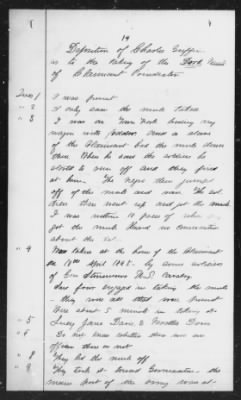 19
Deposition of Charles Griffin
as to the taking of the Dark Mule
of Claimant Poindexter
Ques 1 I was present
" 2 I only saw the mule taken
" 3 I was on Town Fork loading my
wagon with fodder. and a slave
of the Claimant had the mule down
there. When he saw the soldiers he
started to run off and they fired
at him. The negro then jumped
off of the mule and ran. The sol
diers then went up and got the mule
I was within 10 paces of when
got the mule. Heard no conversation
about the
" 4 Was taken at the home of the Claimant
on 10th April 1865 - by some soldiers
of Gen Stoneman U.S. Cavalry.
Saw four engaged in taking the mule
- they were all that were present
Were about 5 minutes in taking it
" 5 Lucy Jane Dave &
" 6 Do not know whether there was an
officer there or not
" 7 They led the mule off
" 8 They took it toward Germanton - the
main part of the army was at